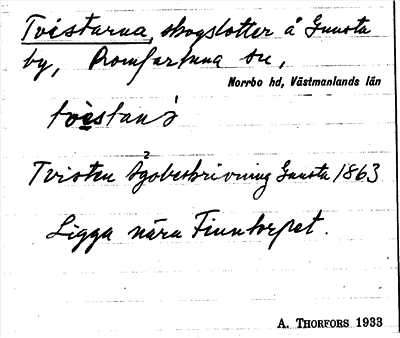 Tvistarna, skogslotter å Gunsta
by, Romfartuna sn,
Norrbo hd, Västmanlands län
Tvisten Ägobeskrivning Gunsta 1863
2
Ligga nära Finntorpet.
A. THORFORS 1933